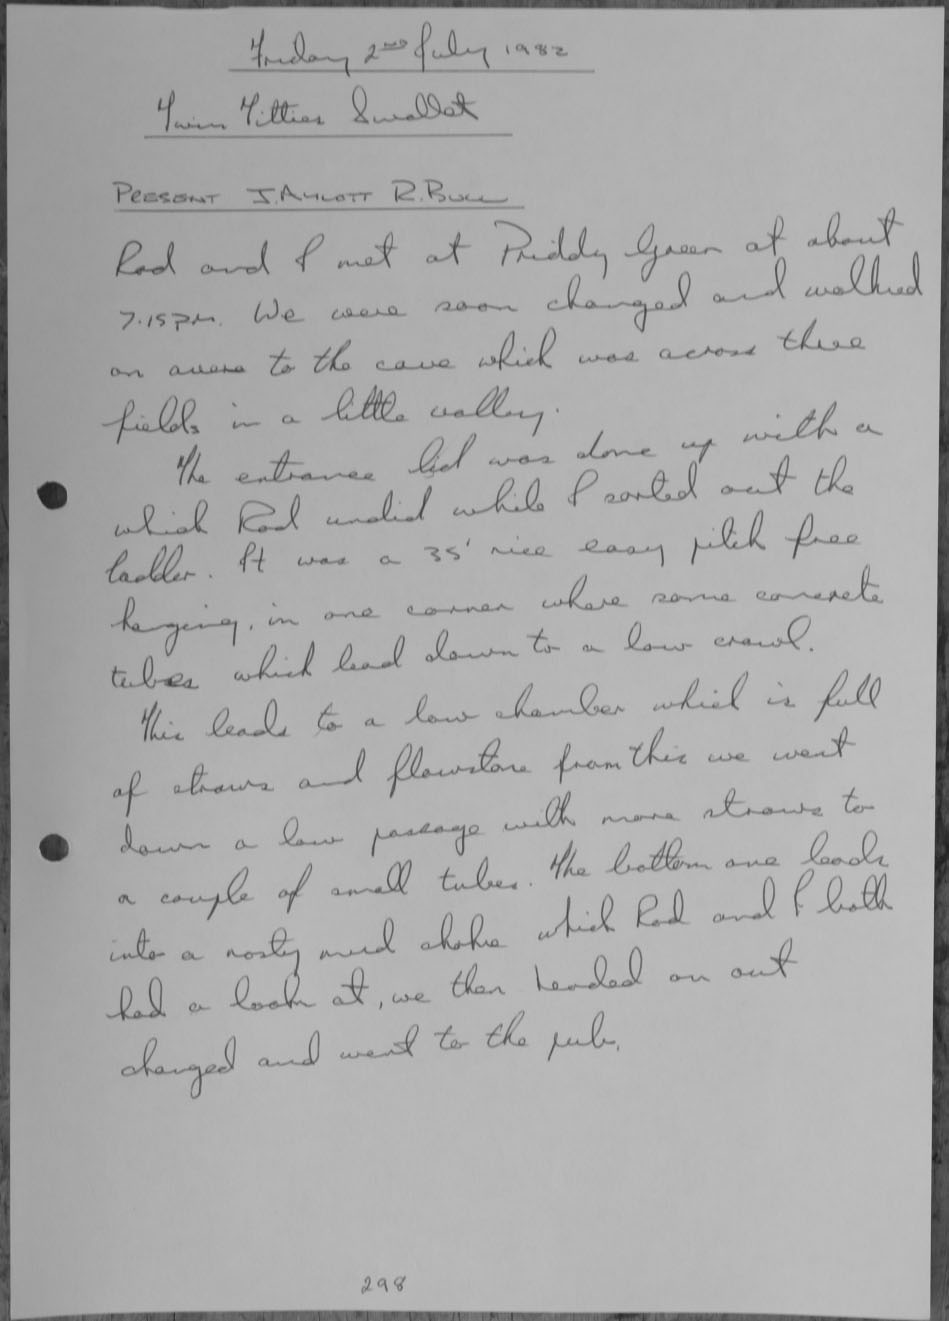 Friday 2nd July 1982
Twin Titties Swallet
PRESENT J. AYLOTT R. BULL
Rod and I met at Priddy Green at about
7.15PM. We were soon changed and walked
on to the cave which was across three
fields in a little valley.
The entrance lid was done up with a
which Rod undid while I sorted out the
ladder. It was a 35' nice easy pitch free
hanging, in one corner where some concrete
tubes which lead down to a low crawl.
This leads to a low chamber which is full
of straws and flowstone from this we went
down a low passage with more straws to
a couple of small tubes. The bottom one leads
into a nasty mud choke which Rod and I both
had a look at, we then headed on out
changed and went to the pub.
298